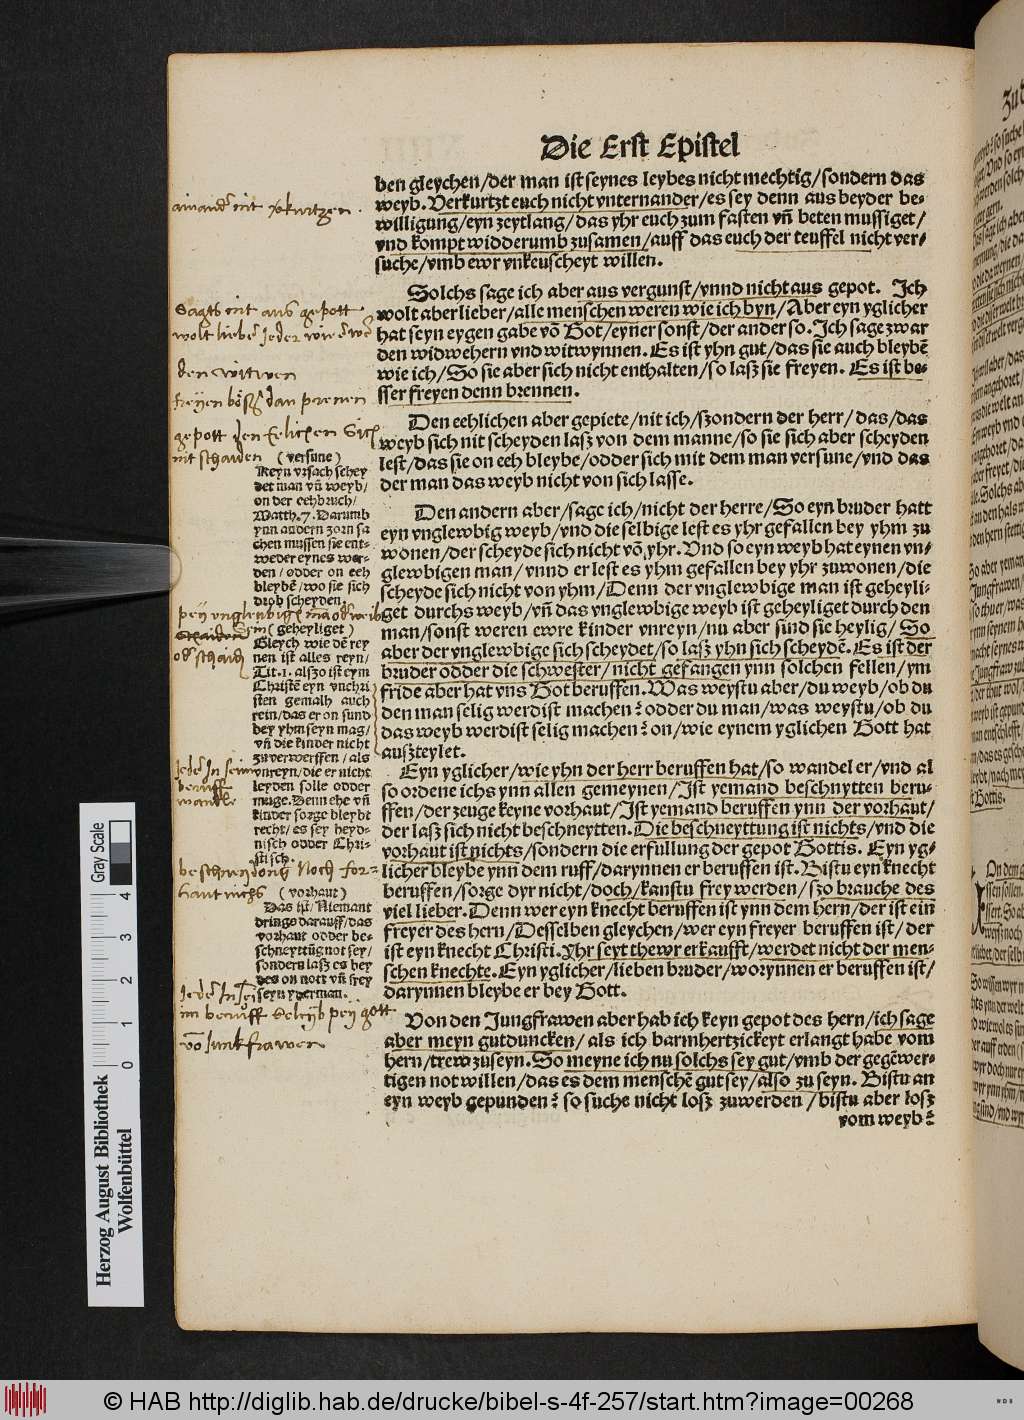 Die Erst Epistel
ben gleychen/der man ist seynes leybes nicht mechtig/sondern das
weyb. Verkurtzt euch nicht vnternander/es sey denn aus beyder be-
willigung/eyn zeytlang/das yhr euch zum fasten vn̄ beten mussiget/
vnd kompt widderumb zusamen/auff das euch der teuffel nicht ver-
suche/vmb ewr vnkeuscheyt willen.
Solchs sage ich aber aus vergunst/vnnd nicht aus gepot. Ich
wolt aber lieber/alle menschen weren wie ich byn/Aber eyn yglicher
hat seyn eygen gabe vō Got/eyner sonst/der ander so. Ich sage zwar
den widwehern vnd witwynnen. Es ist yhn gut/das sie auch bleybē
wie ich/So sie aber sich nicht enthalten/so lasz sie freyen. Es ist be-
sser freyen denn brennen.
Den eehlichen aber gepiete/nit ich/szondern der herr/das/das
weyb sich nit scheyden lasz von dem manne/so sie sich aber scheyden
lest/das sie on eeh bleybe/odder sich mit dem man versune/vnd das
der man das weyb nicht von sich lasse.
Den andern aber/sage ich/nicht der herre/So eyn bruder hatt
eyn vnglewbig weyb/vnd die selbige lest es yhr gefallen bey yhm zu
wonen/der scheyde sich nicht vō yhr. Vnd so eyn weyb hat eynen vn-
glewbigen man/vnnd er lest es yhm gefallen bey yhr zuwonen/die
scheyde sich nicht von yhm/Denn der vnglewbige man ist geheyli-
get durchs weyb/vn̄ das vnglewbige weyb ist geheyliget durch den
man/sonst weren ewre kinder vnreyn/nu aber sind sie heylig/So
aber der vnglewbige sich scheydet/so lasz yhn sich scheydē. Es ist der
bruder odder die schwester/nicht gefangen ynn solchen fellen/ym
fride aber hat vns Got beruffen. Was weystu aber/du weyb/ob du
den man selig werdist machen? odder du man/was weystu/ob du
das weyb werdist selig machen? on/wie eynem yglichen Gott hat
auszteylet.
Eyn yglicher/wie yhn der herr beruffen hat/so wandel er/vnd al
so ordene ichs ynn allen gemeynen/Ist yemand beschnytten beru-
ffen/der zeuge keyne vorhaut/Ist yemand beruffen ynn der vorhaut/
der lasz sich nicht beschneytten. Die beschneyttung ist nichts/vnd die
vorhaut ist nichts/sondern die erfullung der gepot Gottis. Eyn yg-
licher bleybe ynn dem ruff/darynnen er beruffen ist. Bistu eyn knecht
beruffen/sorge dyr nicht/doch/kanstu frey werden/szo brauche des
viel lieber. Denn wer eyn knecht beruffen ist ynn dem hern/der ist ein
freyer des hern/Desselben gleychen/wer eyn freyer beruffen ist/der
ist eyn knecht Christi. Yhr seyt thewr erkaufft/werdet nicht der men-
schen knechte. Eyn yglicher/lieben bruder/worynnen er beruffen ist/
darynnen bleybe er bey Gott.
Von den Jungfrawen aber hab ich keyn gepot des hern/ich sage
aber meyn gutduncken/als ich barmhertzickeyt erlangt habe vom
hern/trew zuseyn. So meyne ich nu solchs sey gut/vmb der gegēwer-
tigen not willen/das es dem menschē gut sey/also zu seyn. Bistu an
eyn weyb gepunden? so suche nicht losz zuwerden/bistu aber losz
vom weyb?
(versune)
Keyn vrsach schey
det man vn̄ weyb/
on der eehbruch/
Matth. 7. Darumb
ynn andern zorn sa
chen mussen sie ent-
weder eynes wer-
den/odder on eeh
bleybē/wo sie sich
drob scheyden.
(geheyliget)
Gleych wie dē rey
nen ist alles reyn/
Tit. 1. alszo ist eym
Christē eyn vnchri
sten gemalh auch
rein/das er on sund
bey yhm seyn mag/
vn̄ die kinder nicht
zuverwerffen/als
vnreyn/die er nicht
leyden solle odder
muge. Denn ehe vn̄
kinder sorge bleybt
recht/es sey heyd-
nisch odder Chri-
stisch.
(vorhaut)
Das ist/Niemant
dringe darauff/das
vorhaut odder be-
schneyttūg not sey/
sondern lasz es bey
des on nott vn̄ frey
seyn yderman.
Sagts nit aus gepott
den witwen
gepott den Eelichen
nit schaiden
Jeder In seim
beruff
wandle
im beruff beleyb pey gott
vō Junkfrawen
Herzog August Bibliothek
Wolfenbüttel
Gray Scale
0 1 2 3 4
© HAB http://diglib.hab.de/drucke/bibel-s-4f-257/start.htm?image=00268